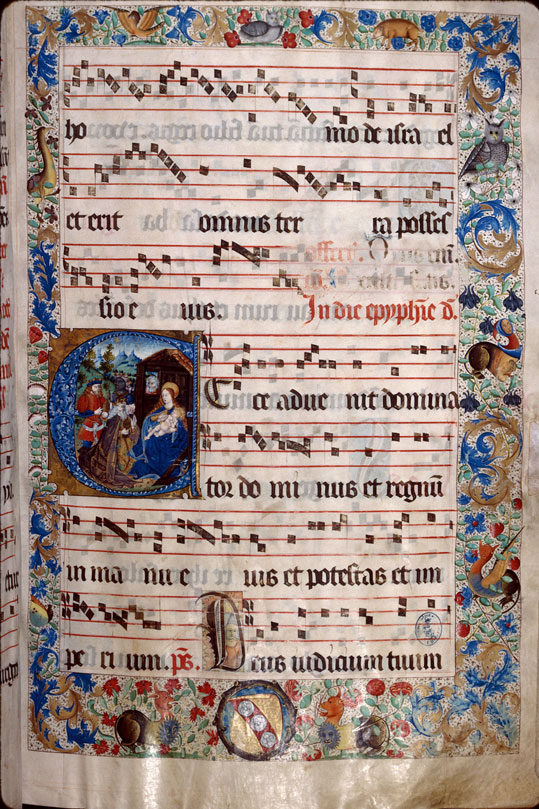 ho mo de isra el
et erit omnnis ter ra posses
sio e ius.
In die epyphie d.
E cce adue nit domina
tor do mi nus et regnū
in ma nu e ius et potestas et im
pe ri um. ps. Deus iudicium tuum